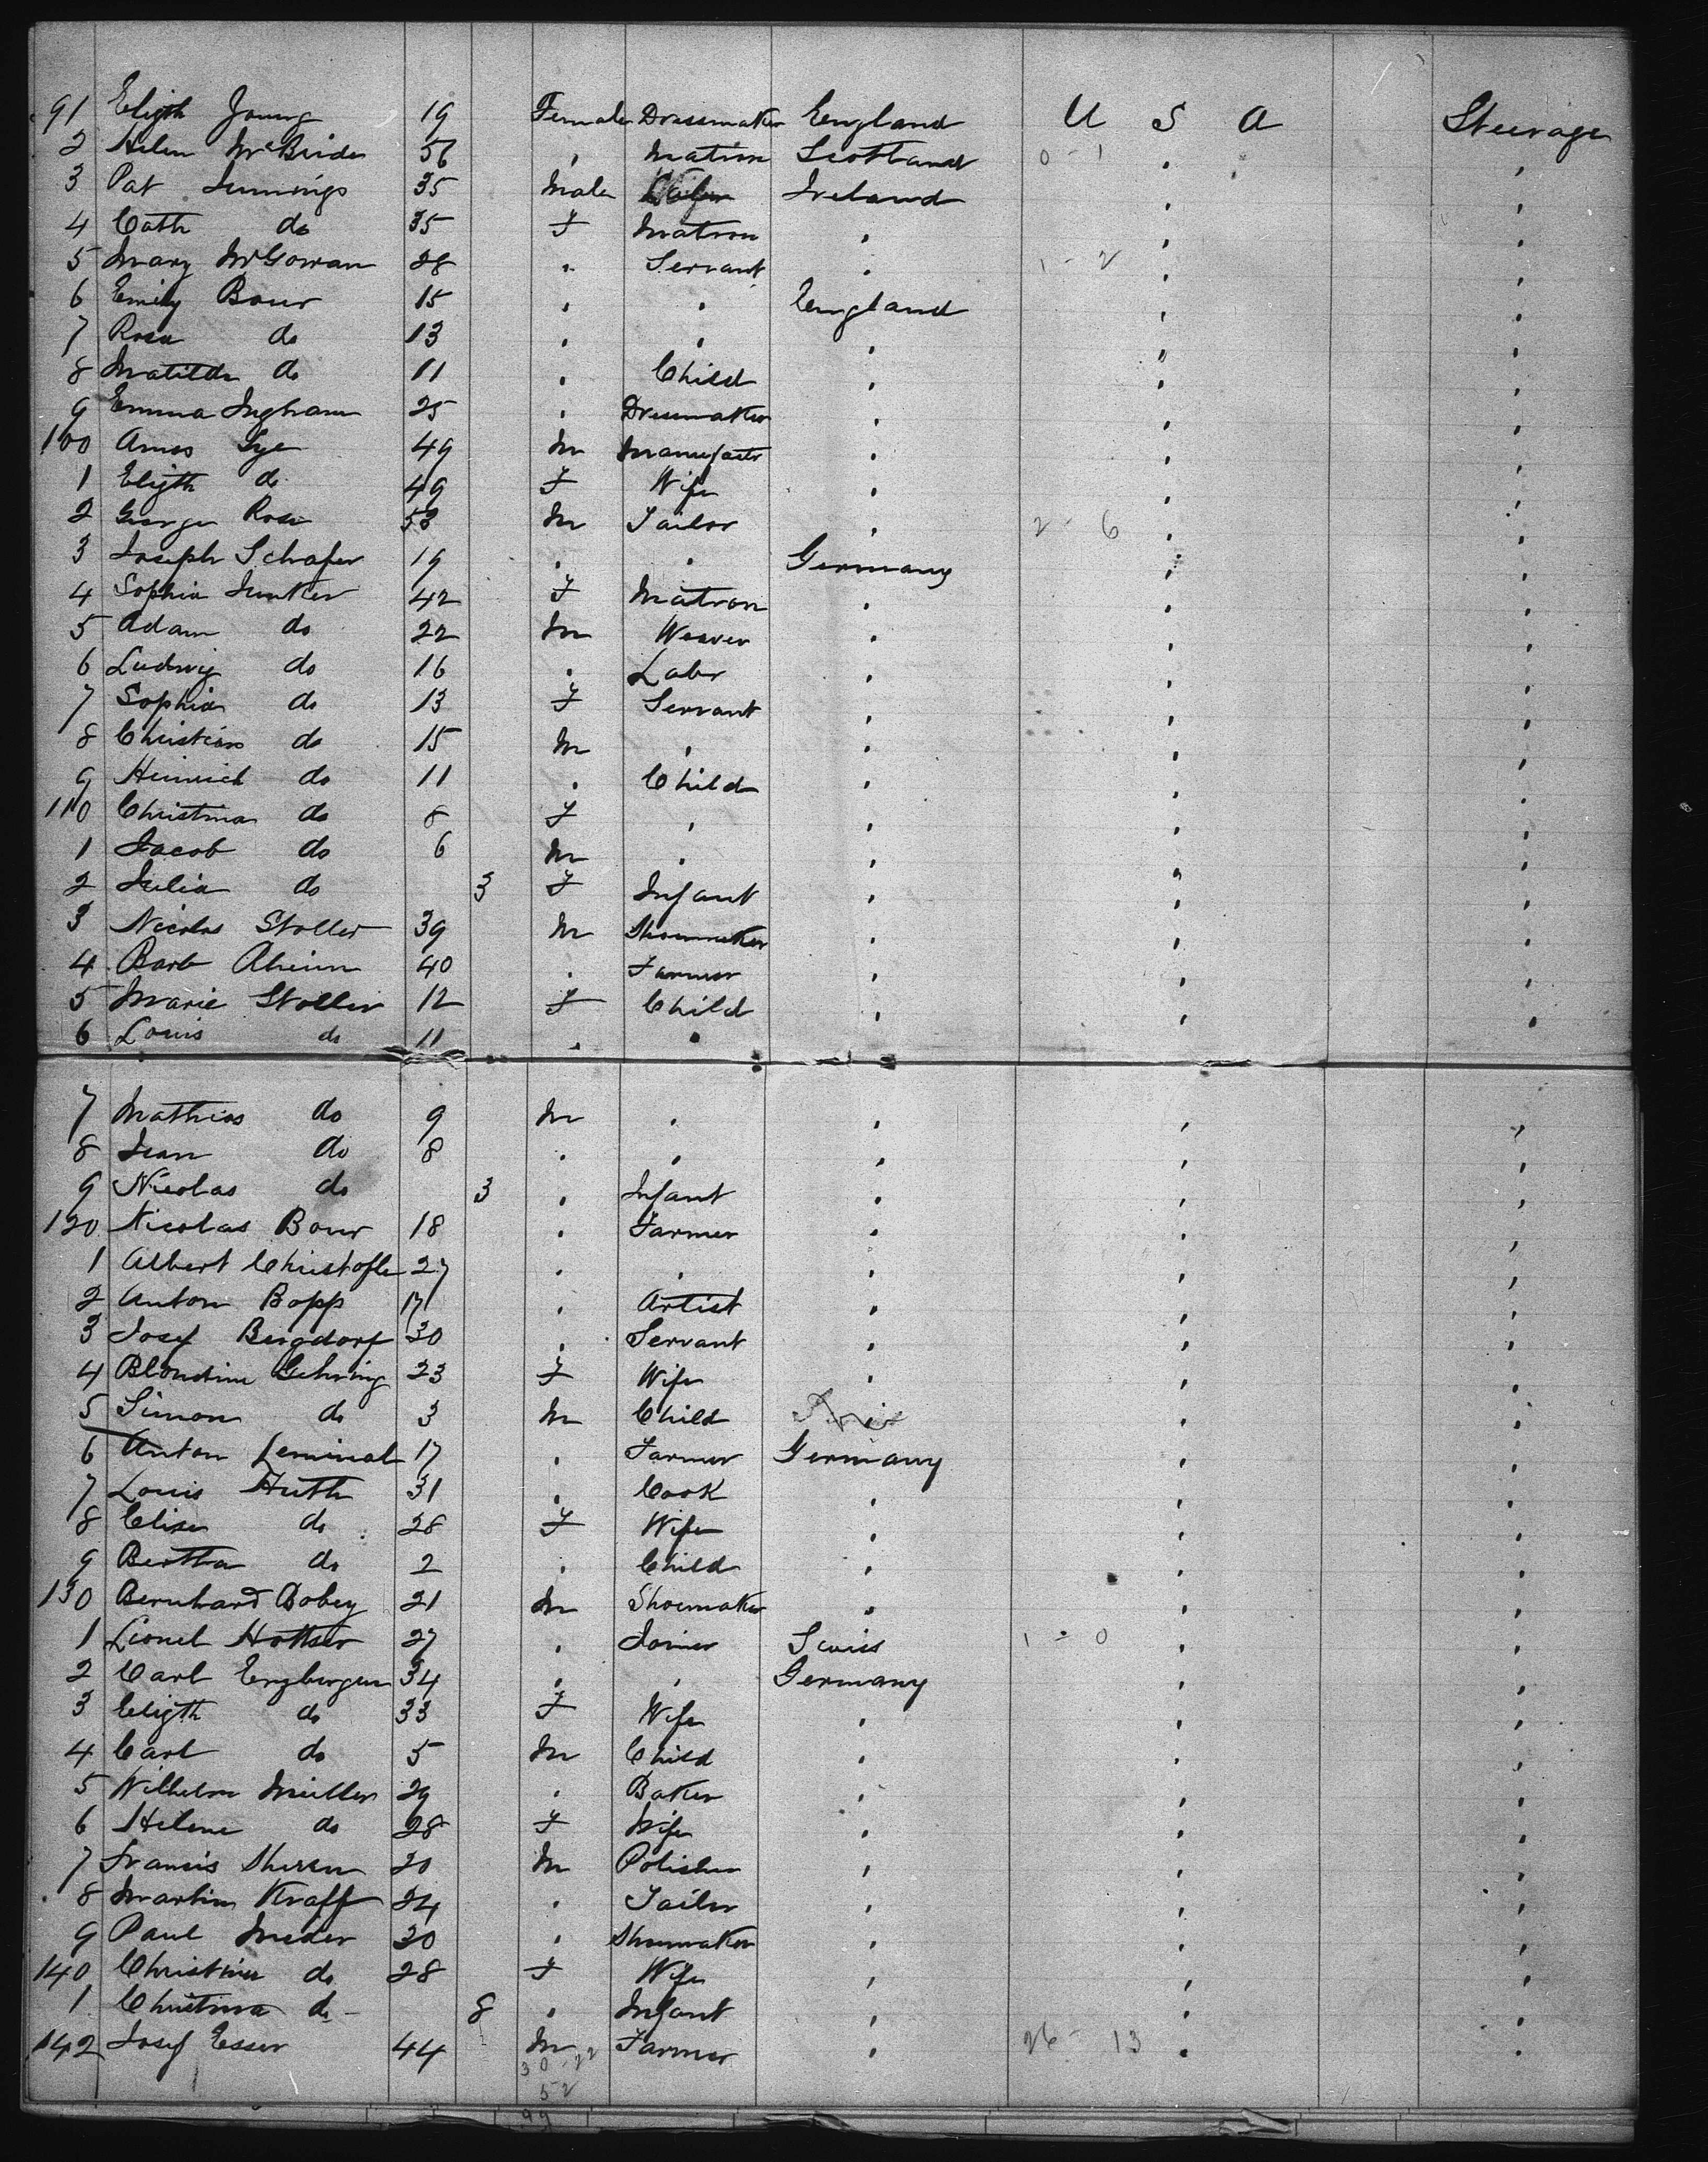 91 Eligth Young 19 Female Dressmaker England U S A Steerage
2 Helen McBride 56 " Matron Scotland 0 - 1 " "
3 Pat Jennings 35 Male Ireland " "
4 Cath do 35 F Matron " " "
5 Mary McGowan 28 " Servant " 1 - 2 " "
6 Emily Bour 15 " " England " "
7 Rosa do 13 " " " " "
8 Matilda do 11 " Child " " "
9 Emma Ingham 25 " Dressmaker " " "
100 Amos Lye 49 M Manufactr " " "
1 Eligth do 49 F Wife " " "
2 George Rose 53 M Tailor " 2 - 6 " "
3 Joseph Schafer 19 " " Germany " "
4 Sophia Junker 42 F Matron " " "
5 Adam do 22 M Weaver " " "
6 Ludwig do 16 " Labr " " "
7 Sophia do 13 F Servant " " "
8 Christian do 15 M " " " "
9 Heinrich do 11 " Child " " "
110 Christina do 8 F " " " "
1 Jacob do 6 M " " " "
2 Julia do 3 F Infant " " "
3 Nicolas Stoller 39 M Shoemaker " " "
4 Barb 40 " Farmer " " "
5 Marie Stoller 12 F Child " " "
6 Louis do 11 " "
7 Mathias do 9 M " " " "
8 Jean do 8 " " " " "
9 Nicolas do 3 " Infant " " "
120 Nicolas Bour 18 " Farmer " " "
1 Albert Christofle 27 " " " " "
2 Anton Bopp 17 " Artist " " "
3 Josef Bergdorf 30 " Servant " " "
4 Blondine Gehring 23 F Wife " " "
5 Simon do 3 M Child " "
6 Anton 17 " Farmer Germany " "
7 Louis Huth 31 " Cook " " "
8 Elise do 28 F Wife " " "
9 Bertha do 2 " Child " " "
130 Bernhard Bobey 21 M Shoemaker " " "
1 Lionel Hottser 27 " Joiner Swiss 1 - 0 " "
2 Carl Enzbergen 34 " " Germany " "
3 Eligth do 33 F Wife " " "
4 Carl do 5 M Child " " "
5 Wilhelm Muller 29 " Baker " " "
6 Helene do 28 F Wife " " "
7 Francis 20 M Polisher " " "
8 Martin Kraff 24 " Tailor " " "
9 Paul 30 " Shoemaker " " "
140 Christina do 28 F Wife " " "
1 Christina do 8 " Infant " " "
142 Josef Esser 44 M Farmer " 26 - 13 " "
30 - 22
52
99